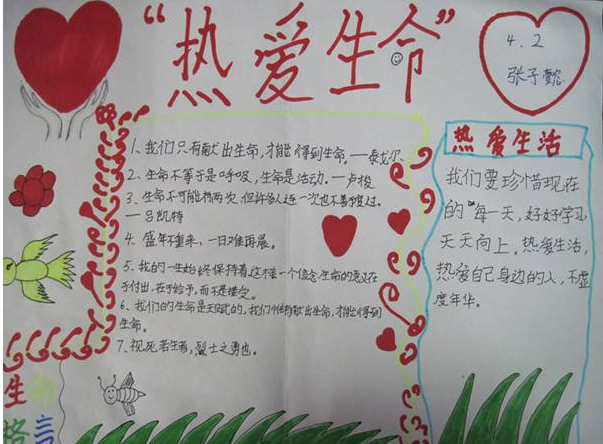 “热爱生命”
4.2
张子懿
1、我们只有献出生命,才能得到生命。—泰戈尔
2、生命不等于是呼吸,生命是活动。—卢梭
3、生命不可能有两次,但许多人连一次也不善于度过。
—吕凯特
4、盛年不重来,一日难再晨。
5、我的一生始终保持着这样一个信念:生命的意义在
于付出,在于给予,而不是接受。
6、我们的生命是天赋的,我们惟有献出生命,才能得到
生命。
7、视死若生者,烈士之勇也。
热爱生活
我们要珍惜现在
的每一天,好好学习
天天向上。热爱生活,
热爱自己身边的人,不虚
度年华。
生命
格言